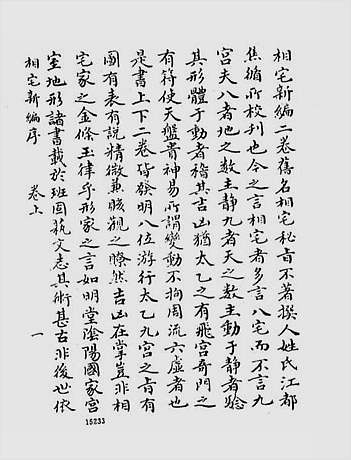 相宅新編二卷舊名相宅秘旨不著撰人姓氏江都
焦循所校刊也今之言相宅者多言八宅而不言九
宮夫八者地之數主靜九者天之數主動于靜者騐
其形體于動者稽其吉凶猶太乙之有飛宮奇門之
有符使天盤貴神易所謂變動不拘周流六虛者也
是書上下二卷皆發明八位游行太乙九宮之旨有
圖有表有說精微兼賅觀之瞭然吉凶在掌豈非相
宅家之金條玉律乎形家之言如明堂陰陽國家宮
室地形諸書載於班固藝文志其術甚古非後世依
相宅新編序
卷上
一
15233